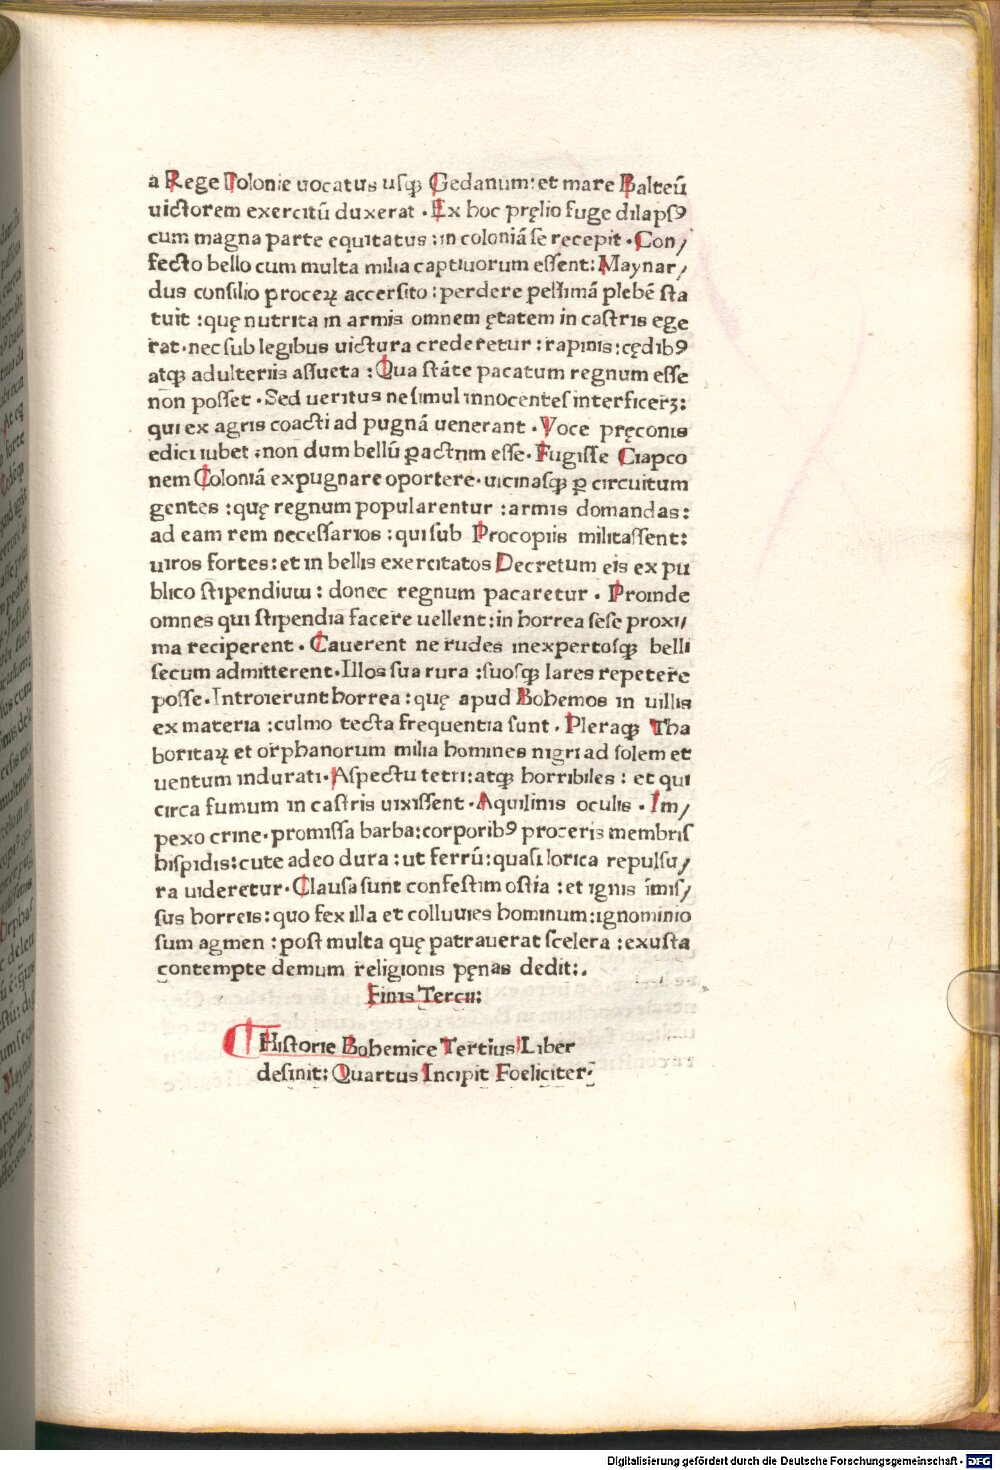 a Rege Polonie uocatus usqꝫ Gedanum: et mare Balteū
uictorem exercitū duxerat · Ex hoc pręlio fuge dilapsꝰ
cum magna parte equitatus : in coloniā se recepit · Con/
fecto bello cum multa milia captiuorum essent: Maynar/
dus consilio proceꝝ accersito : perdere pessimā plebē sta
tuit : quę nutrita in armis omnem ętatem in castris ege
rat · nec sub legibus uictura crederetur : rapinis : cędibꝰ
atqꝫ adulteriis assueta : Qua stāte pacatum regnum esse
non posset · Sed ueritus ne simul innocentes interficerꝫ:
qui ex agris coacti ad pugnā uenerant · Voce pręconis
edici iubet : non dum bellū ꝑactum esse · Fugisse Ciapco
nem Coloniā expugnare oportere · uicinasqꝫ ꝑ circuitum
gentes : quę regnum popularentur : armis domandas:
ad eam rem necessarios : qui sub Procopiis militassent:
uiros fortes : et in bellis exercitatos Decretum eis ex pu
blico stipendium : donec regnum pacaretur · Proinde
omnes qui stipendia facere uellent : in horrea sese proxi/
ma reciperent · Cauerent ne rudes inexpertosqꝫ belli
secum admitterent · Illos sua rura : suosqꝫ lares repetere
posse · Introierunt horrea : quę apud Bohemos in uillis
ex materia : culmo tecta frequentia sunt · Pleraqꝫ Tha
boritaꝝ et orphanorum milia homines nigri ad solem et
uentum indurati · Aspectu tetri : atqꝫ horribiles : et qui
circa fumum in castris uixissent · Aquilinis oculis · Im/
pexo crine · promissa barba : corporibꝰ proceris membris
hispidis : cute adeo dura : ut ferrū : quasi lorica repulsu/
ra uideretur · Clausa sunt confestim ostia : et ignis īmis/
sus horreis : quo fex illa et colluuies hominum : ignominio
sum agmen : post multa quę patrauerat scelera : exusta
contempte demum religionis pęnas dedit :.
Finis Tercii:
Historie Bohemice Tertius Liber
desinit: Quartus Incipit Foeliciter:
Digitalisierung gefördert durch die Deutsche Forschungsgemeinschaft · DFG